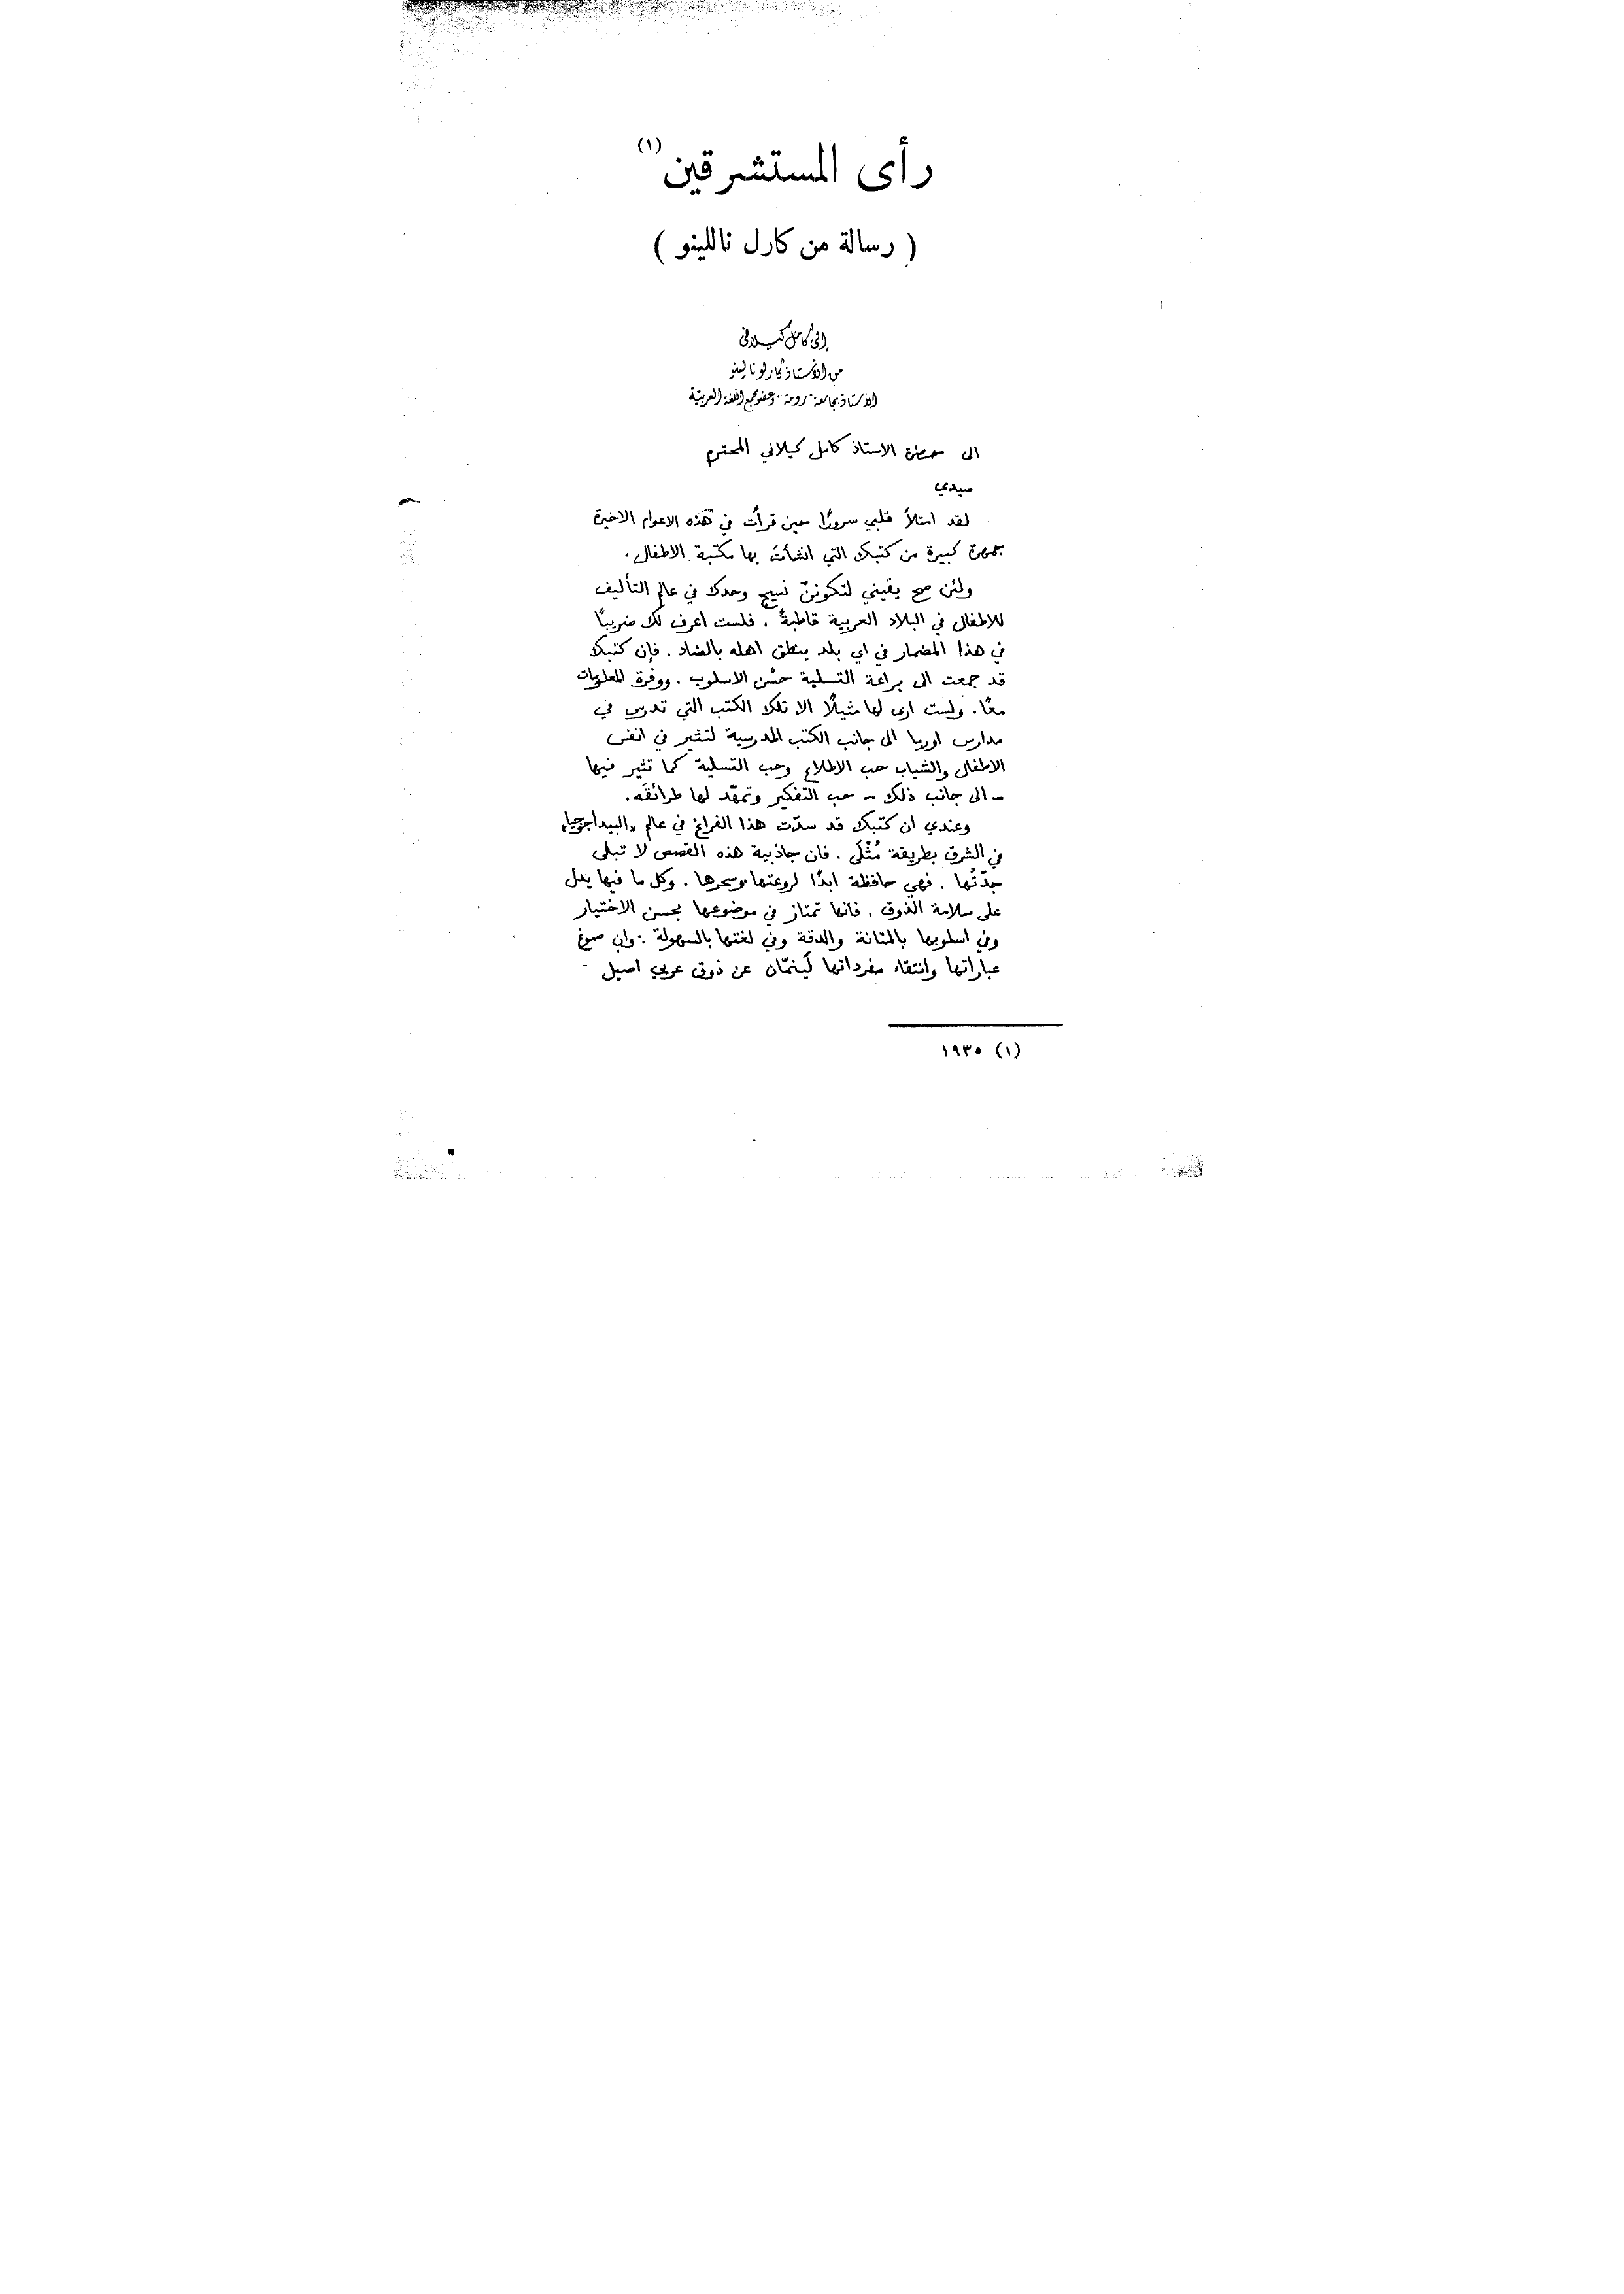 رأى المستشرقين (١)
( رسالة من كارل ناللينو )
إلى كامل كيلانى
من الأستاذ كارلو نالينو
الأستاذ بجامعة "رومة" وعضو مجمع اللغة العربيّة
الى حضرة الاستاذ كامل كيلاني المحترم
سيدي
لقد امتلأ قلبي سرورًا حين قرأت في هذه الاعوام الاخيرة
جمهرة كبيرة من كتبك التي انشأتَ بها مكتبة الاطفال.
ولئن صح يقيني لتكوننّ نسيج وحدك في عالم التأليف
للاطفال في البلاد العربية قاطبةً. فلست اعرف لك ضريبًا
في هذا المضمار في اي بلد ينطق اهله بالضاد. فإن كتبك
قد جمعت الى براعة التسلية حسْن الاسلوب. ووفرة المعلومات
معًا. ولست ارى لها مثيلًا الا تلك الكتب التي تدرس في
مدارس اوربا الى جانب الكتب المدرسية لتثير في انفس
الاطفال والشباب حب الاطلاع وحب التسلية كما تثير فيها
- الى جانب ذلك - حب التفكير وتمهّد لها طرائقَه.
وعندي ان كتبك قد سدّت هذا الفراغ في عالم «البيداجوجيا»
في الشرق بطريقة مُثْلَى. فان جاذبية هذه القصص لا تبلى
جدّتُها. فهي حافظة ابدًا لروعتها وسحرها. وكل ما فيها يدل
على سلامة الذوق. فانها تمتاز في موضوعها بحسن الاختيار
وفي اسلوبها بالمتانة والدقة وفي لغتها بالسهولة. وان صوغ
عباراتها وانتقاء مفرداتها لَينمّان عن ذوق عربي اصيل
(١) ١٩٣٥